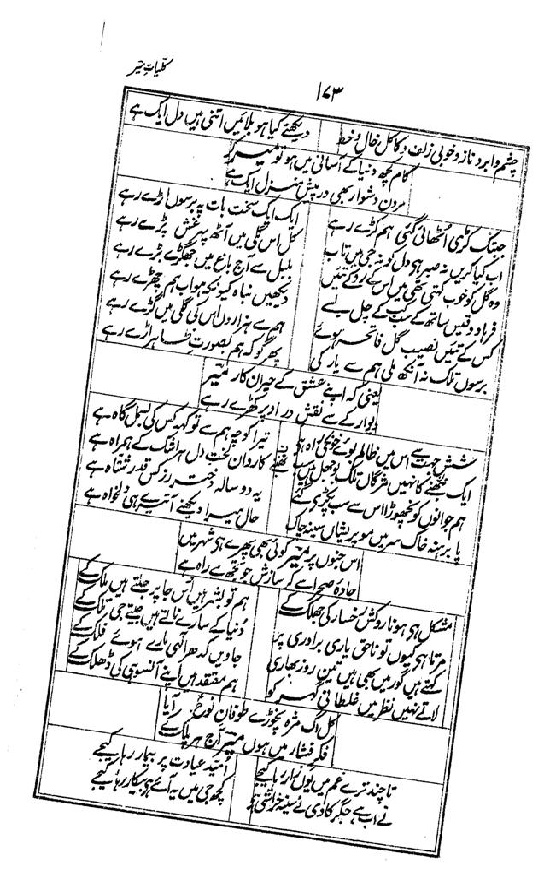 کلیاتِ میر
۱۷۳
چشم و ابرو ناز و خوبی زلف و کاکل خال و خط
دیکھئے کیا ہو بلائیں اتنی ہیں دل ایک ہے
کام کچھ دنیا کے آسانی میں ہو تو میر کہہ
مردن دشوار بھی درپیش منزل ایک ہے
جتنگ کڑی اٹھائی گئی ہم کڑے رہے
ایک ایک سخت بات پہ برسوں اڑے رہے
اب کیا کریں نہ صبر ہے دل کو نہ جی میں تاب
کل اس گلی میں آٹھ پہر غش پڑے رہے
وہ گل کو خوب کہتی تھی میں اس کے رو کے تئیں
بلبل سے آج باغ میں جھگڑے بڑے رہے
فرہاد و قیس ساتھ کے سب کب کے چل بسے
دیکھیں نباہ کیونکے ہو اب ہم چھڑے رہے
کس کے تئیں نصیب گل فاتحہ ہوئے
ہم سے ہزاروں اس کی گلی میں گڑے رہے
برسوں تلک نہ آنکھ ملی ہم سے یار کی
پھر گو کہ ہم بصورت ظاہر اڑے رہے
یعنی کہ اپنے عشق کے حیران کار میر
دیوار کے سے نقش در اوپر کھڑے رہے
شش جہت سے اس میں ظالم بوئے خوں کی راہ ہے
تیرا کوچہ ہم سے تو کہہ کس کی بسمل گاہ ہے
ایک نبھنے کا نہیں مژگاں تلک بوجھل ہیں سب
کاروان لخت دل ہر اشک کے ہمراہ ہے
ہم جوانوں کو نہ چھوڑا اس سے سب پکڑے گئے
یہ دو سالہ دختِ رز کس قدر شتاہ ہے
پا برہنہ خاک سر میں مو پریشاں سینہ چاک
حال میرا دیکھنے آ تیرے ہی دلخواہ ہے
اس جنوں پر میر کوئی بھی پھرے ہے شہر میں
جادۂ صحرا سے کر سازش جو تجھے راہ ہے
مشکل ہے ہونا روکش رخسار کی جھلک کے
ہم تو بشر ہیں اس جا پر جلتے ہیں ملک کے
مرتا ہے کیوں تو ناحق یاری برادری پر
دنیا کے سارے ناتے ہیں جیتے جی تلک کے
کہتے ہیں گور میں بھی ہیں تین روز بھاری
جاویں کدھر الٰہی مارے ہوئے فلک کے
لاتے نہیں نظر میں غلطانی گہر کو
ہم معتقد ہیں اپنے آنسو ہی کی ڈھلک کے
کل اک مژہ نچوڑے طوفانِ نوح آیا
فکر فشار میں ہوں میر آج ہر پلک کے
تا چند ترے غم میں یوں زار رہا کیجے
امید عیادت پر بیمار رہا کیجے
نے اب ہے جگر کاوی نے سینہ خراشی ہے
کچھ جی میں یہ آئے ہے بیکار رہا کیجے